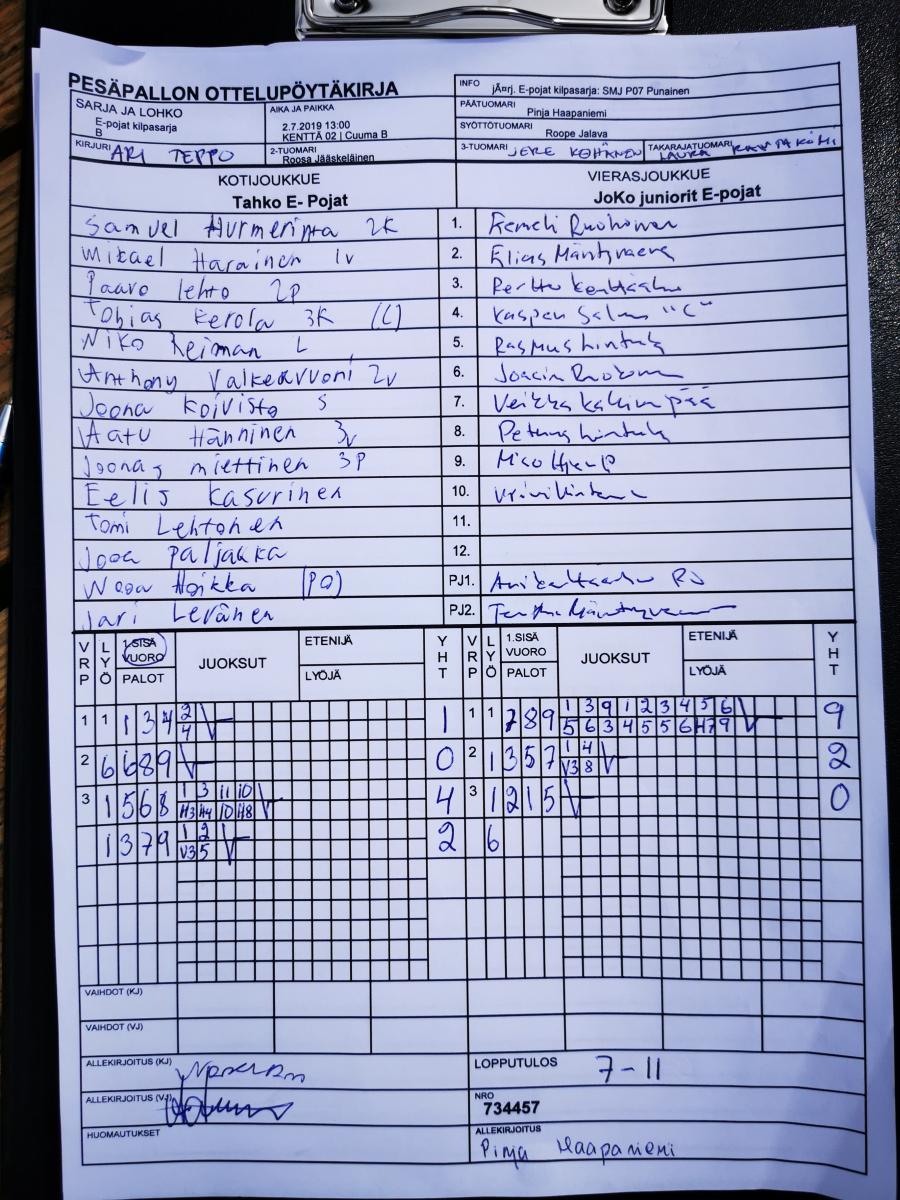 PESÄPALLON OTTELUPÖYTÄKIRJA
INFO jÃ¤rj. E-pojat kilpasarja: SMJ P07 Punainen
SARJA JA LOHKO
E-pojat kilpasarja
B
AIKA JA PAIKKA
2.7.2019 13:00
KENTTÄ 02 | Cuuma B
PÄÄTUOMARI Pinja Haapaniemi
SYÖTTÖTUOMARI Roope Jalava
KIRJURI ARI TEPPO
2-TUOMARI Roosa Jääskeläinen
3-TUOMARI JERE KOHÄNEN
TAKARAJATUOMARI LAURA
KOTIJOUKKUE
Tahko E- Pojat
VIERASJOUKKUE
JoKo juniorit E-pojat
Samuel Hurmerinta 2K 1. Eemeli Ruohonen
Mikael Harainen 1v 2. Elias Mäntyvaara
Paavo lehto 2p 3. Perttu
Tobias Kerola 3K (C) 4. Kasper Salmi "C"
Niko Reiman L 5. Rasmus hintula
Anthony Valkeavuori 2v 6. Joacin
Joona Koivisto S 7. Veikka kallionpää
Aatu Hänninen 3v 8. hintula
Joonas miettinen 3P 9. Miso
Eelis Kasurinen 10.
Tomi Lehtonen 11.
Jooa paljakka 12.
Nooa Hoikka (PQ) PJ1.
Jari Levänen PJ2. Mäntyvaara
VRP LYÖ 1.SISÄ VUORO PALOT JUOKSUT ETENIJÄ LYÖJÄ YHT VRP LYÖ 1.SISÄ VUORO PALOT JUOKSUT ETENIJÄ LYÖJÄ YHT
1 1 1 3 4 2 1 1 1 7 8 9 1 3 9 1 2 3 4 5 6 9
4 5 6 3 4 5 5 6 H7 9
2 6 6 8 9 0 2 1 3 5 7 1 4 2
V3 8
3 1 5 6 8 1 3 11 10 4 3 1 2 1 5 0
H3 H4 10 H8
1 3 7 9 1 2 2 6
V3 5
VAIHDOT (KJ)
VAIHDOT (VJ)
ALLEKIRJOITUS (KJ)
LOPPUTULOS 7-11
ALLEKIRJOITUS (VJ)
NRO
734457
HUOMAUTUKSET
ALLEKIRJOITUS
Pinja Haapaniemi